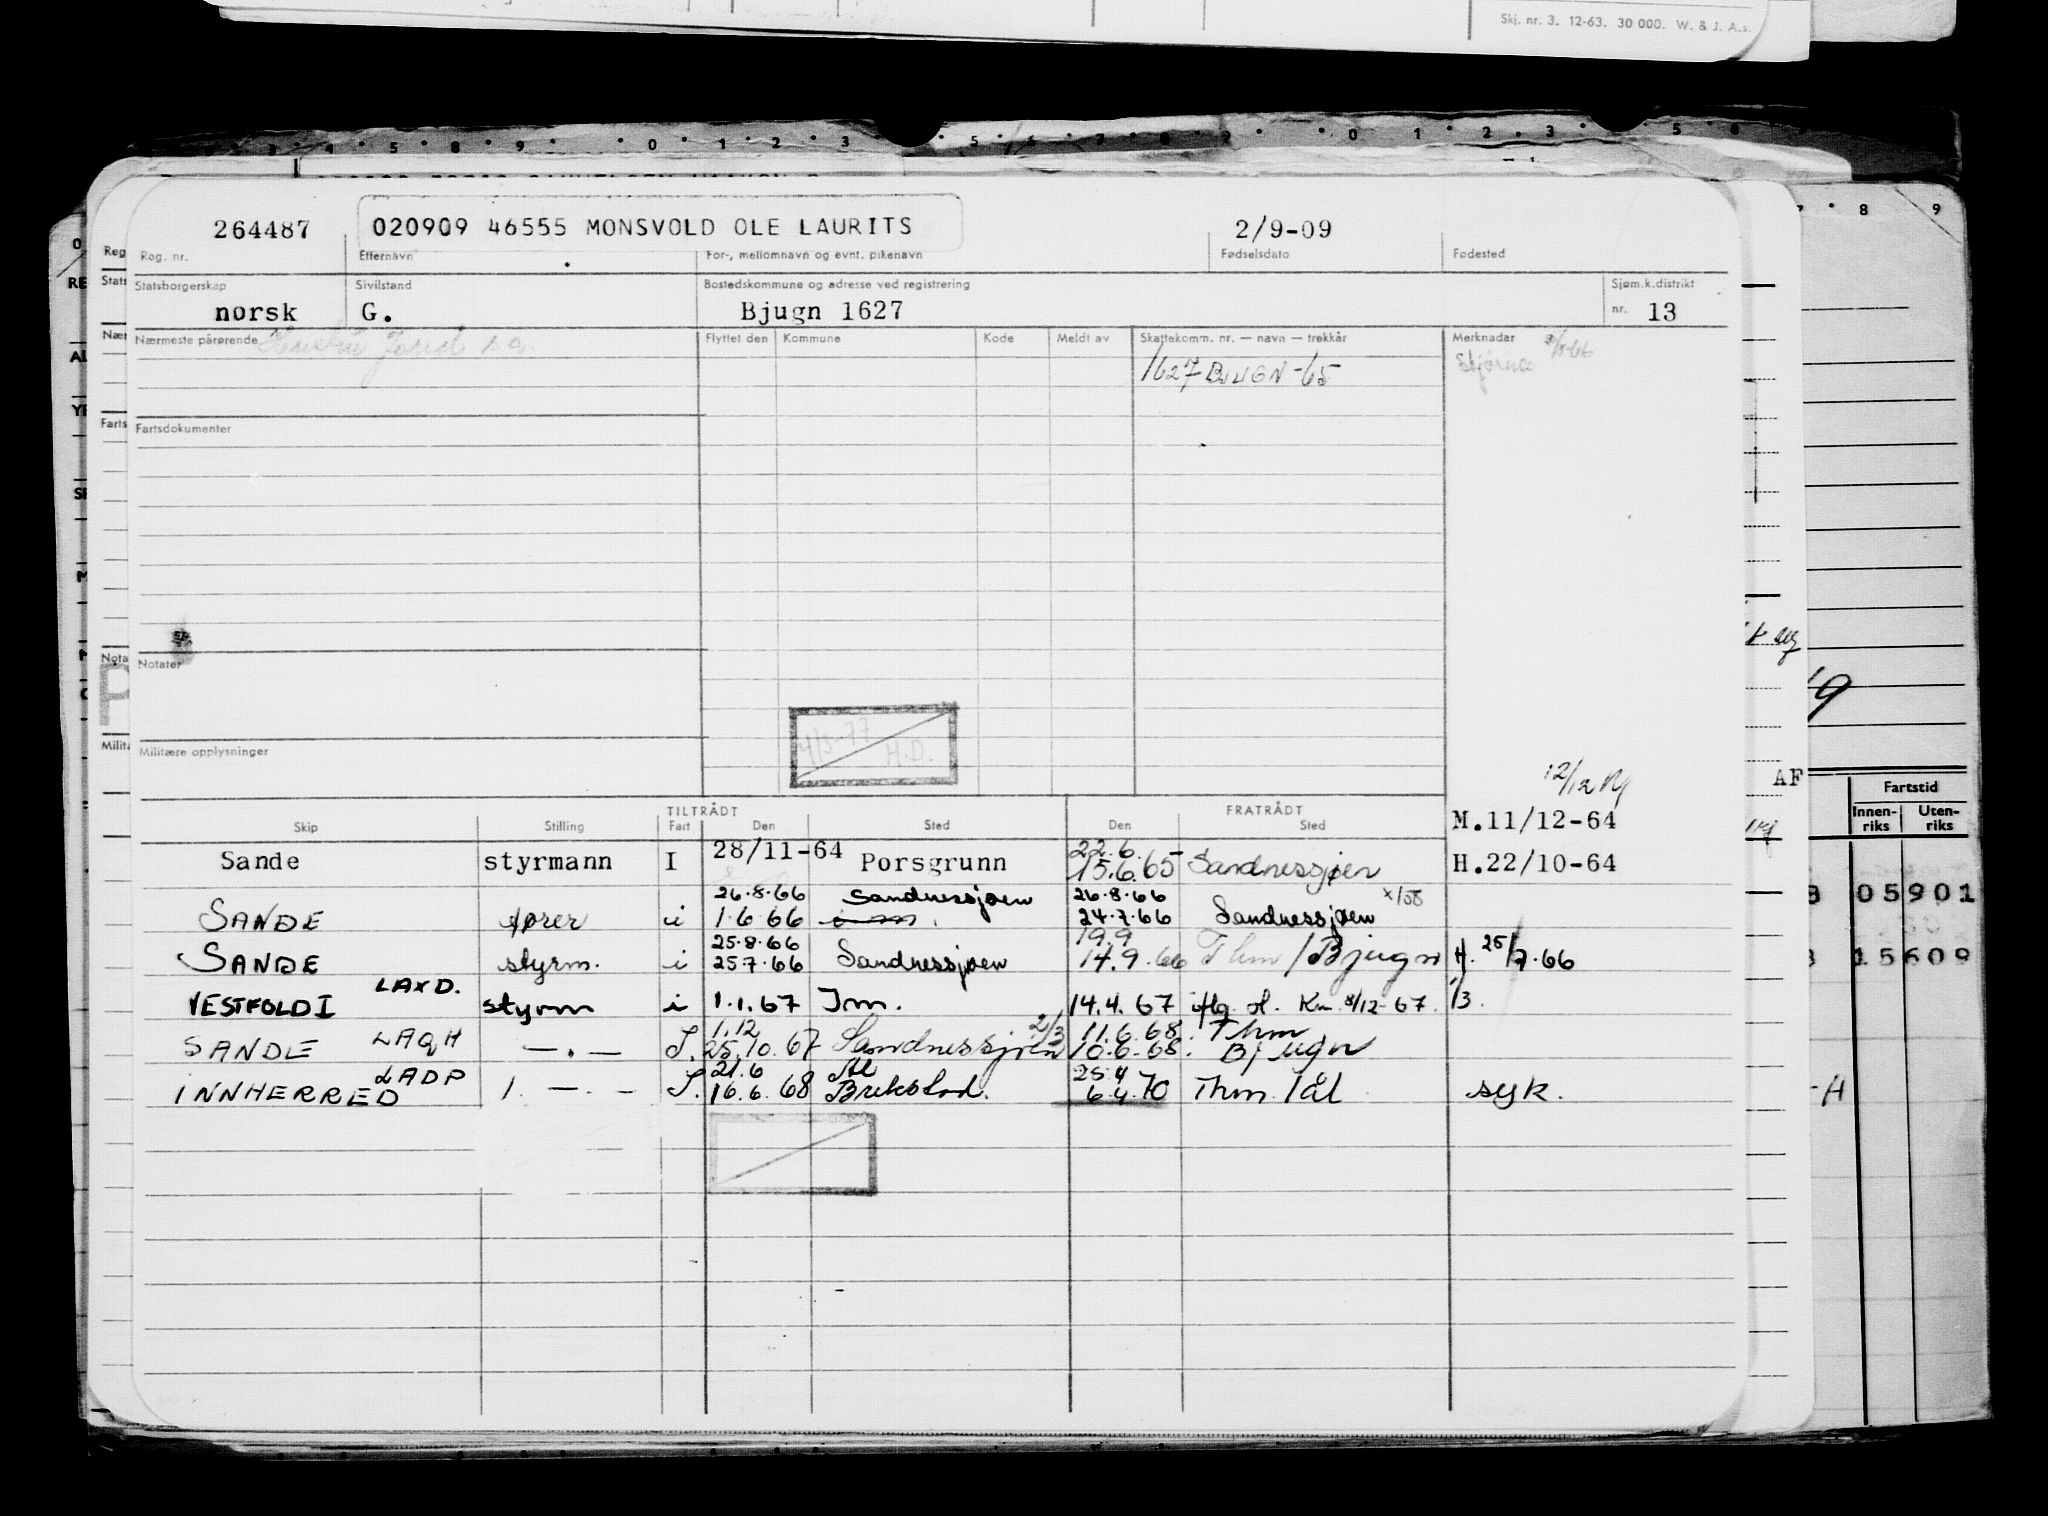 Skj. nr. 3. 12-63. 30 000. W. & J. A.s.
264487 020909 46555 MONSVOLD OLE LAURITS 2/9-09
Reg. nr. Etternavn For-, mellomnavn og evnt. pikenavn Fødselsdato Fødested
Statsborgerskap Sivilstand Bostedskommune og adresse ved registrering Sjøm.k.distrikt
norsk G. Bjugn 1627 nr. 13
Nærmeste pårørende Flyttet den Kommune Kode Meldt av Skattekomm. nr. — navn — trekkår Merknader
1627 BJUGN -65
Fartsdokumenter
Notater
4/3-77
H.D.
Militære opplysninger
12/12
TILTRÅDT FRATRÅDT
Skip Stilling Fart Den Sted Den Sted M.11/12-64
AF
Fartstid
Innen-riks Uten-riks
22.6.
Sande styrmann I 28/11-64 Porsgrunn 15.6.65 Sandnessjøen H.22/10-64
26.8.66 Sandnessjøen 26.8.66 x/58
SANDE fører i 1.6.66 24.7.66 Sandnessjøen
05901
25.8.66 19.9
SANDE styrm. i 25.7.66 Sandnessjøen 14.9.66 Thm / Bjugn H. 25/7.66
15609
LAXD.
VESTFOLD I styrm i 1.1.67 Tm. 14.4.67 iflg. H. Kn. 8/12-67. 1/3.
1.12 2/3 11.6.68. Thm
SANDE LAQH — . — S. 25.10.67 Sandnessjøen 10.6.68. Bjugn
LADP 21.6 Ål 25.4
INNHERRED 1. — . — S. 16.6.68 Brekstad. 6.4.70 Thm / ål syk.